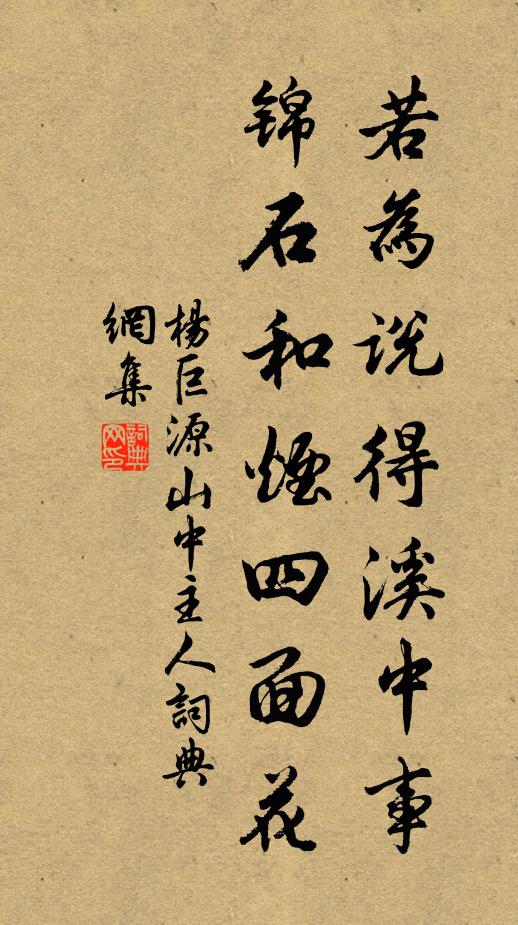 若為説得溪中事
錦石和煙四面花
楊巨源山中主人詞典
網集
詞典
网印